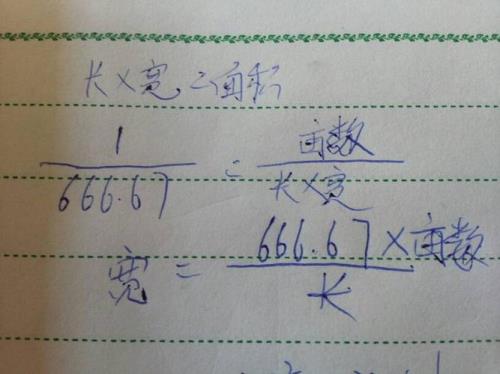 长×宽=面积
1/666.67 = 亩数/长×宽
宽 = 666.67×亩数/长